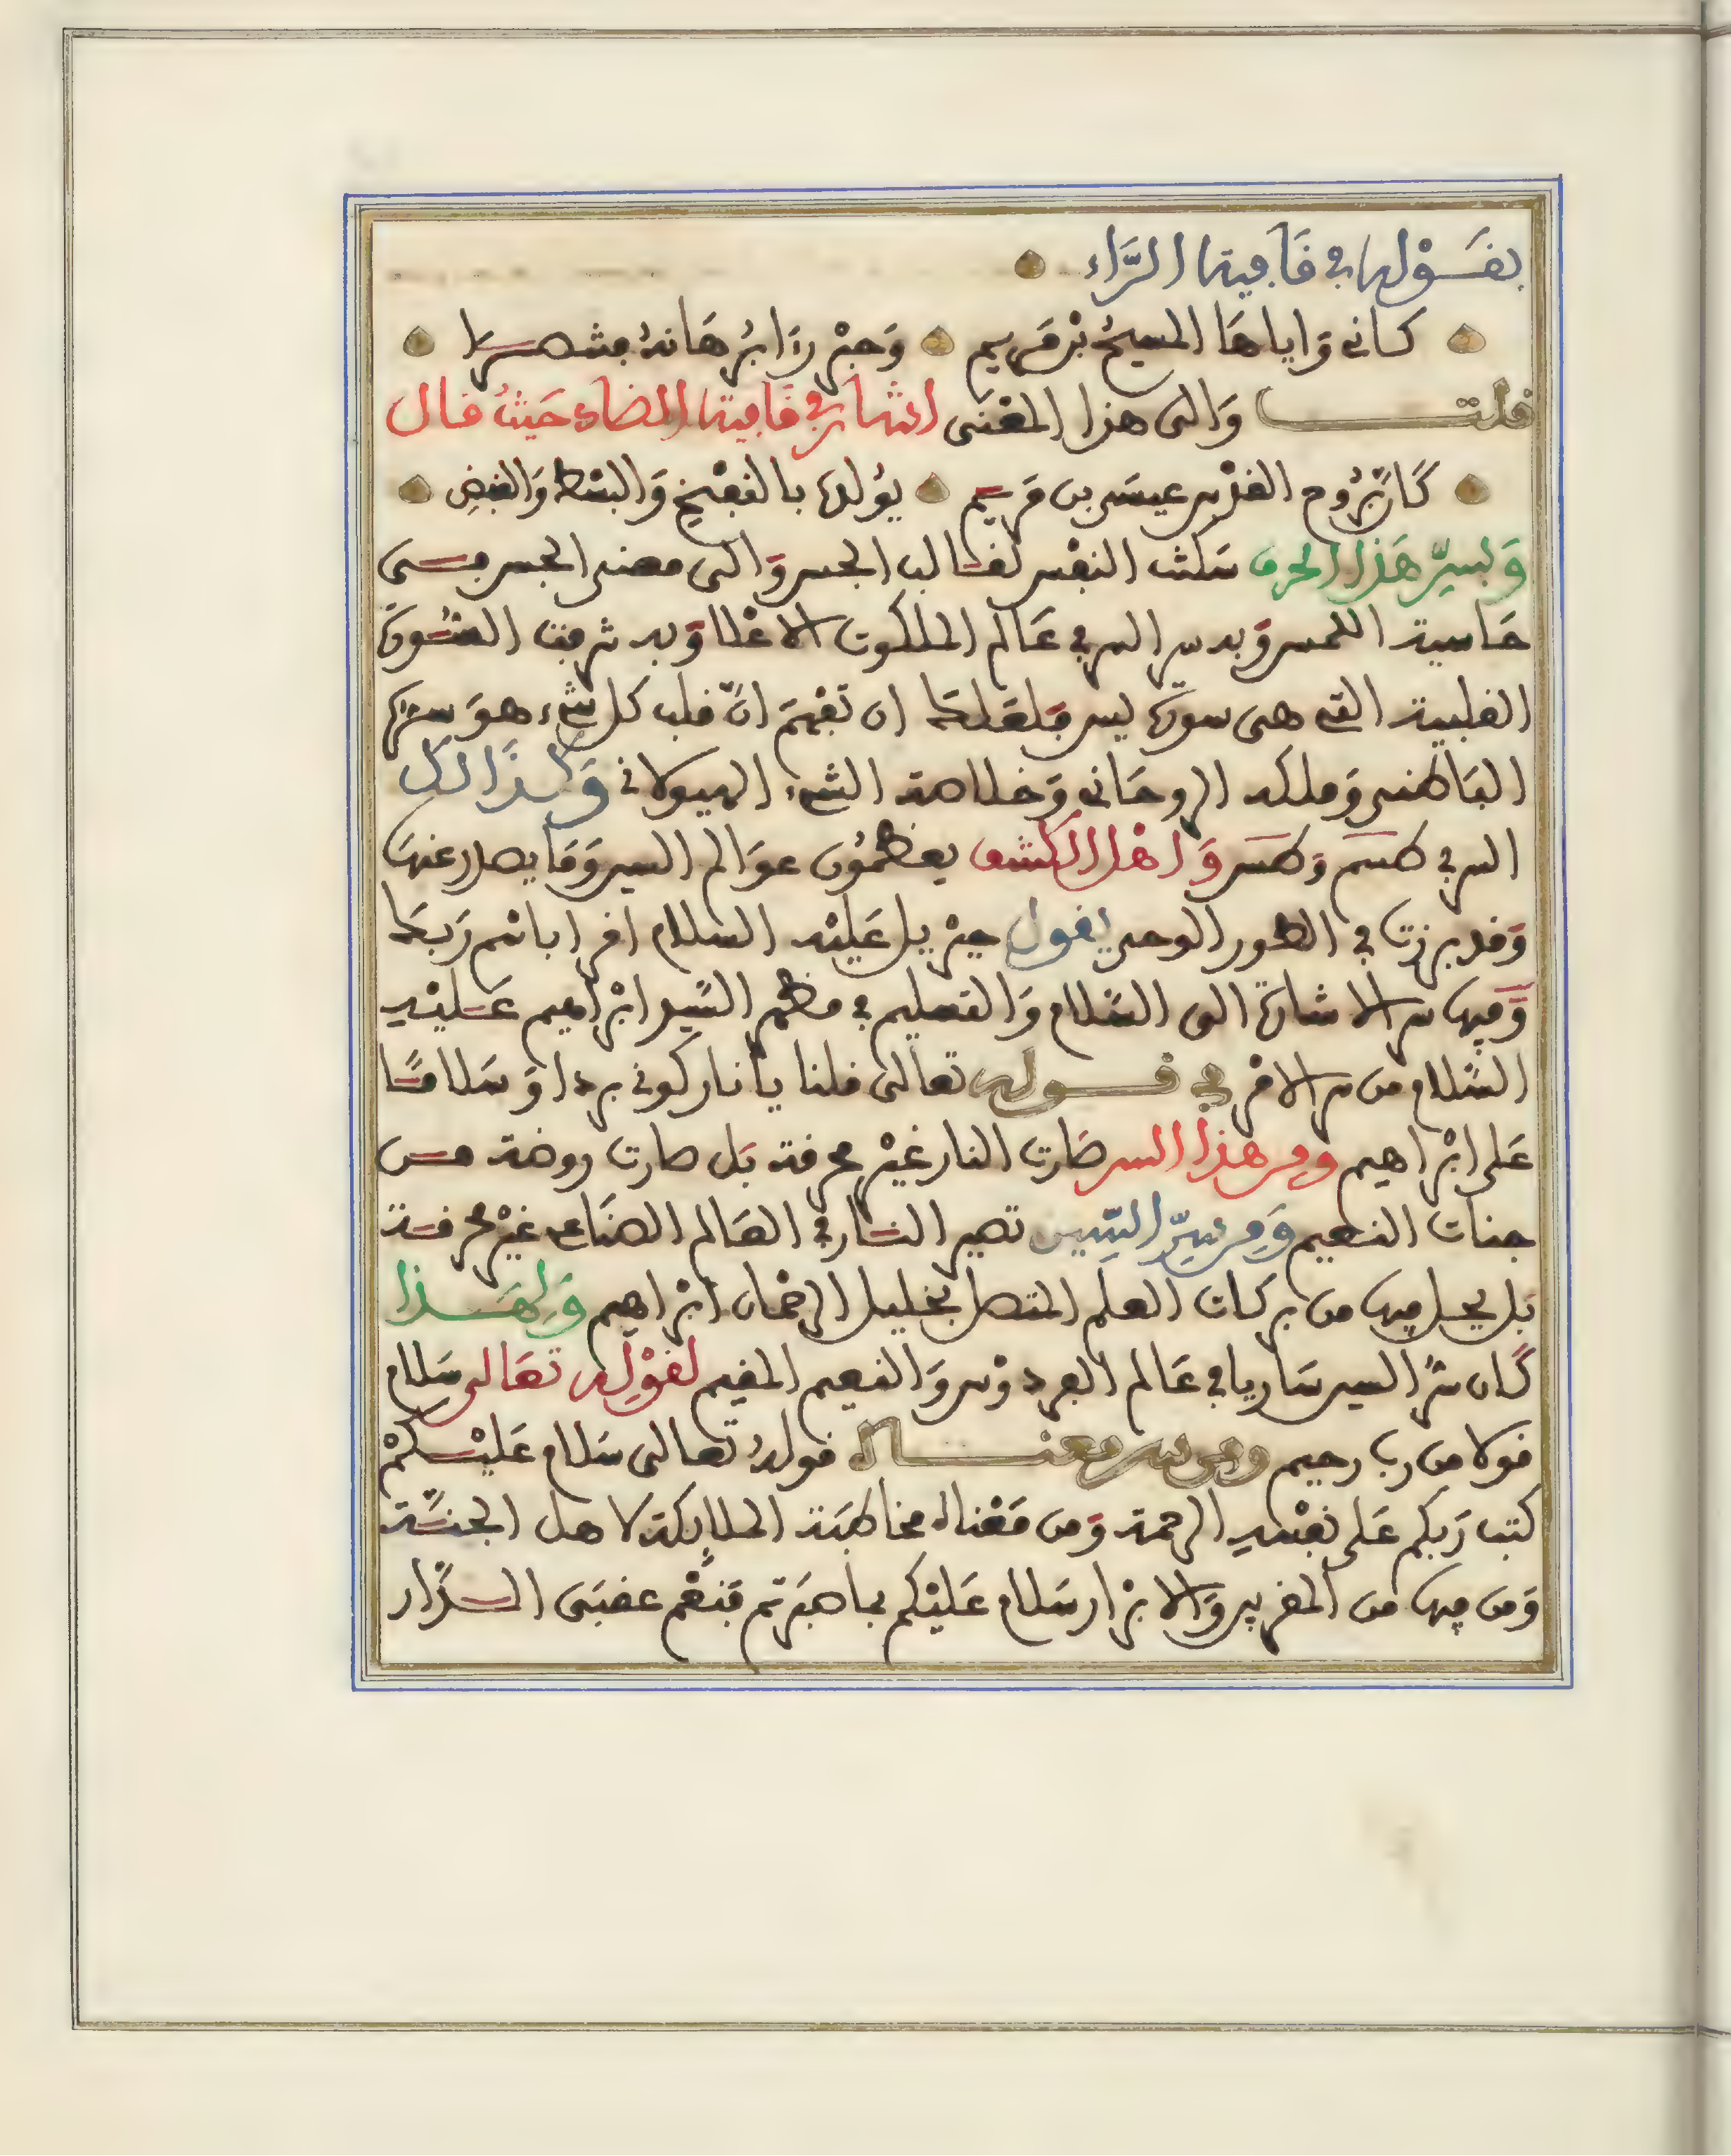 بقوله في قافية الراء
كاني واياها المسيح بن مريم وجبر را برهانه
قلت والى هذا المعنى اشار في قافية الضاد حيث قال
كان روح القدس عيسى بن مريم يؤلها بالنفخ والبسط والقبض
ولسر هذا الحرف سكنت النفس لقالب الجسم والى معنى الجسم
حاسية اللمس وبه سر السر في عالم الملكوت الاعلا وبه شرفت السورة
القلبية التي هي سورة يس فلعلك ان تفهم ان قلب كل شيء هو سره
الباطني وملكه الروحاني وخلاصة الشيء الهيولاني وكذالك
السر في طسم وطس واهل الكشف يعظمون عوالم السين وما يصدر عنها
وقد برزت في الطور الوحي يقول جبريل عليه السلام اقرا باسم ربك
وفيها سر الاشارة الى السلام والتسليم في مظهر السيد ابراهيم عليه
السلام من سر الامر في قوله تعالى قلنا يا نار كوني بردا وسلاما
على ابراهيم ومن هذا السر صارت النار غير محرقة بل صارت روضة من
جنات النعيم ومن سر السين تصير النار في العالم الصناعي غير محرقة
بل يحل فيها من بركات العلم المتصل بخليل الرحمان ابراهيم ولهذا
كان سر السين ساريا في عالم الفردوس والنعيم المقيم لقوله تعالى سلام
قولا من رب رحيم ومن سر معناه قوله تعالى سلام عليكم
كتب ربكم على نفسه الرحمة ومن معناه مخاطبة الملائكة لاهل الجنة
ومن فيها من المقربين والابرار سلام عليكم بما صبرتم فنعم عقبى الدار